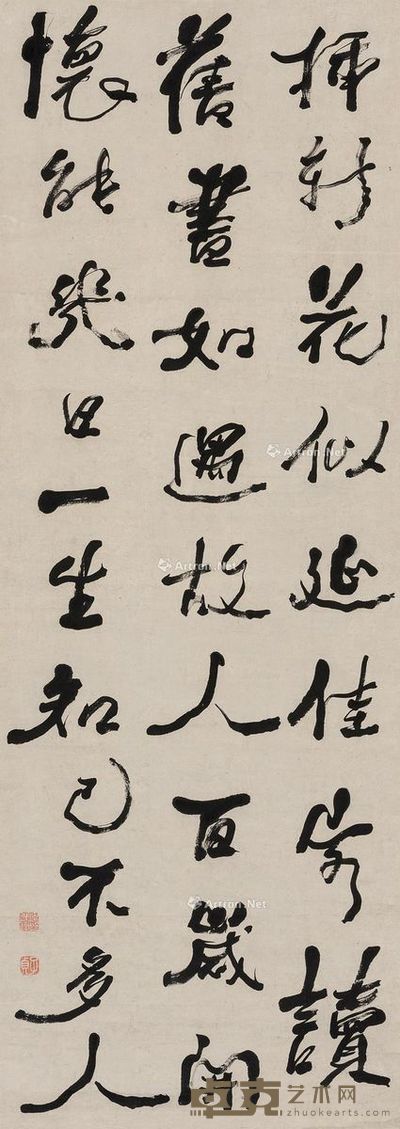 插新花似延佳客讀
舊書如遇故人百歲開
懷能幾日一生知己不多人
Artron.Net
Artron.Net
Artron.Net
Artron.Net
卓克艺术网
zhuokearts.com